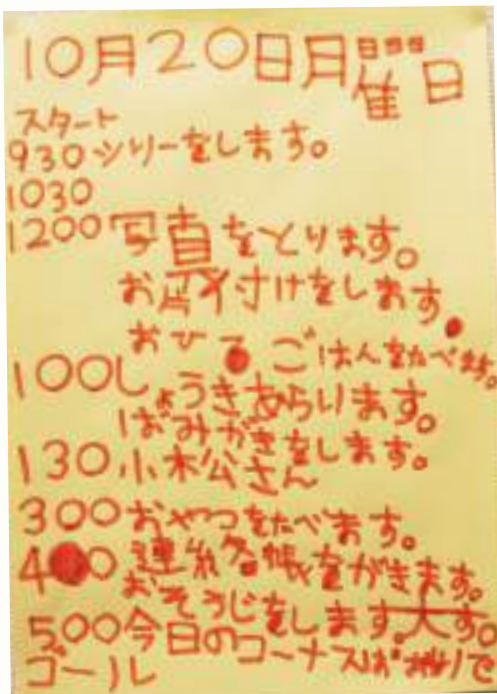 10月20日月曜日
スタート
930シリーをします。
1030
1200写真をとります。
お片付けをします。
おひるごはんをたべます。
100しょうきあらります。
はみがきをします。
130小松さん
300おやつをたべます。
400連絡帳をかきます。
おそうじをします。
500今日のコーナスは
ゴール